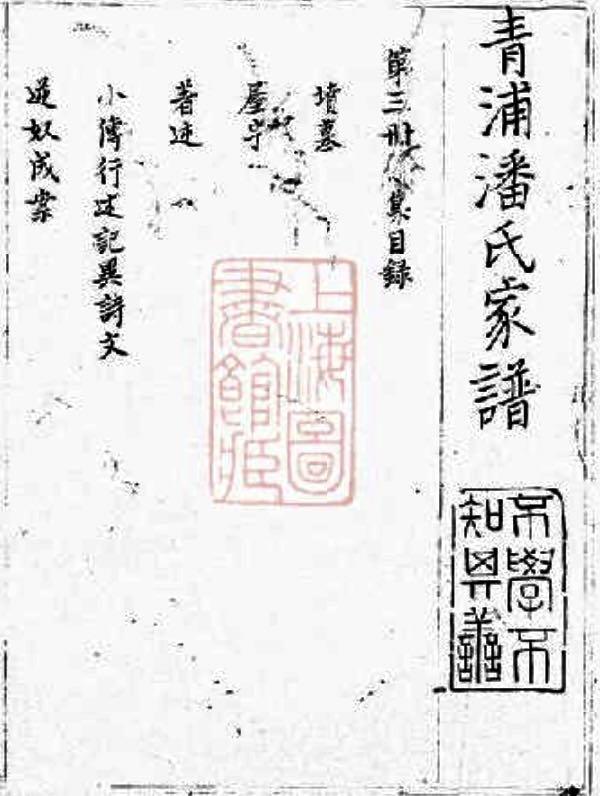 青浦潘氏家譜
不學不知其善
第三冊 集目錄
墳墓
屋宇
著述
小傳行述記異詩文
逆奴成案
上海圖書館